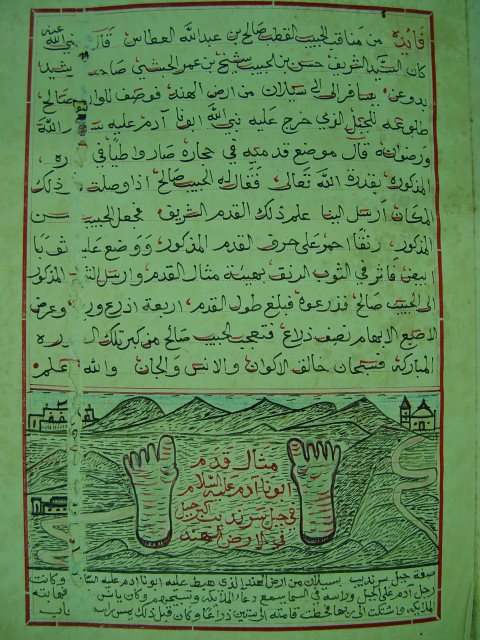 فائدة من مناقب الحبيب القطب صالح بن عبد الله العطاس
كان السيد الشريف حسن بن الحبيب شيخ بن عمر الحبشي صاحب
بدوعن يسافر الى سيلان من ارض الهند فوصف للوالد صالح
طلوعه للجبل الذي خرج عليه نبي الله ابونا آدم عليه
ورضوانه قال موضع قدميه في حجارة صار واطيا في
المذكوره بقدرة الله تعالى فقال له الحبيب صالح اذا وصلت ذلك
المكان ارسل الينا علم ذلك القدم الشريف فجعل الحبيب
المذكور رنقا احمر على حرف القدم المذكور ووضع عليه ثوبا
ابيض فاثر في الثوب الرنق بهيئة مثال القدم وارسل المذكور
الى الحبيب صالح فذرعوه فبلغ طول القدم اربعة اذرع وعرض
الاصبع الابهام نصف ذراع فتعجب الحبيب صالح من كبر تلك
المباركة فسبحان خالق الاكوان والانس والجان والله اعلم
مثال قدم
ابونا آدم عليه السلام
في جبل سرنديب
في الارض الهند
صفة جبل سرنديب بسيلان من ارض الهند الذي هبط عليه ابونا آدم عليه السلام وكانت
رجل آدم على الجبل وراسه في السما يسمع دعاء الملايكة وتسبيحهم وكان يانس
الملايكة واشتكت الى ربها فحطت قامته الى ستين ذراعا وكان قبل ذلك